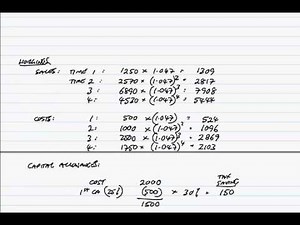 WORKINGS
SALES: TIME 1: 1250 × 1.047 = 1309
TIME 2: 2570 × (1.047)² = 2817
3: 6890 × (1.047)³ = 7908
4: 4530 × (1.047)⁴ = 5444
COSTS: 1: 500 × (1.047) = 524
2: 1000 × (1.047)² = 1096
3: 2500 × (1.047)³ = 2869
4: 1750 × (1.047)⁴ = 2103
CAPITAL ALLOWANCES:
COST 2000 TAX SAVING
1ST CA (25%) (500) × 30% = 150
1500